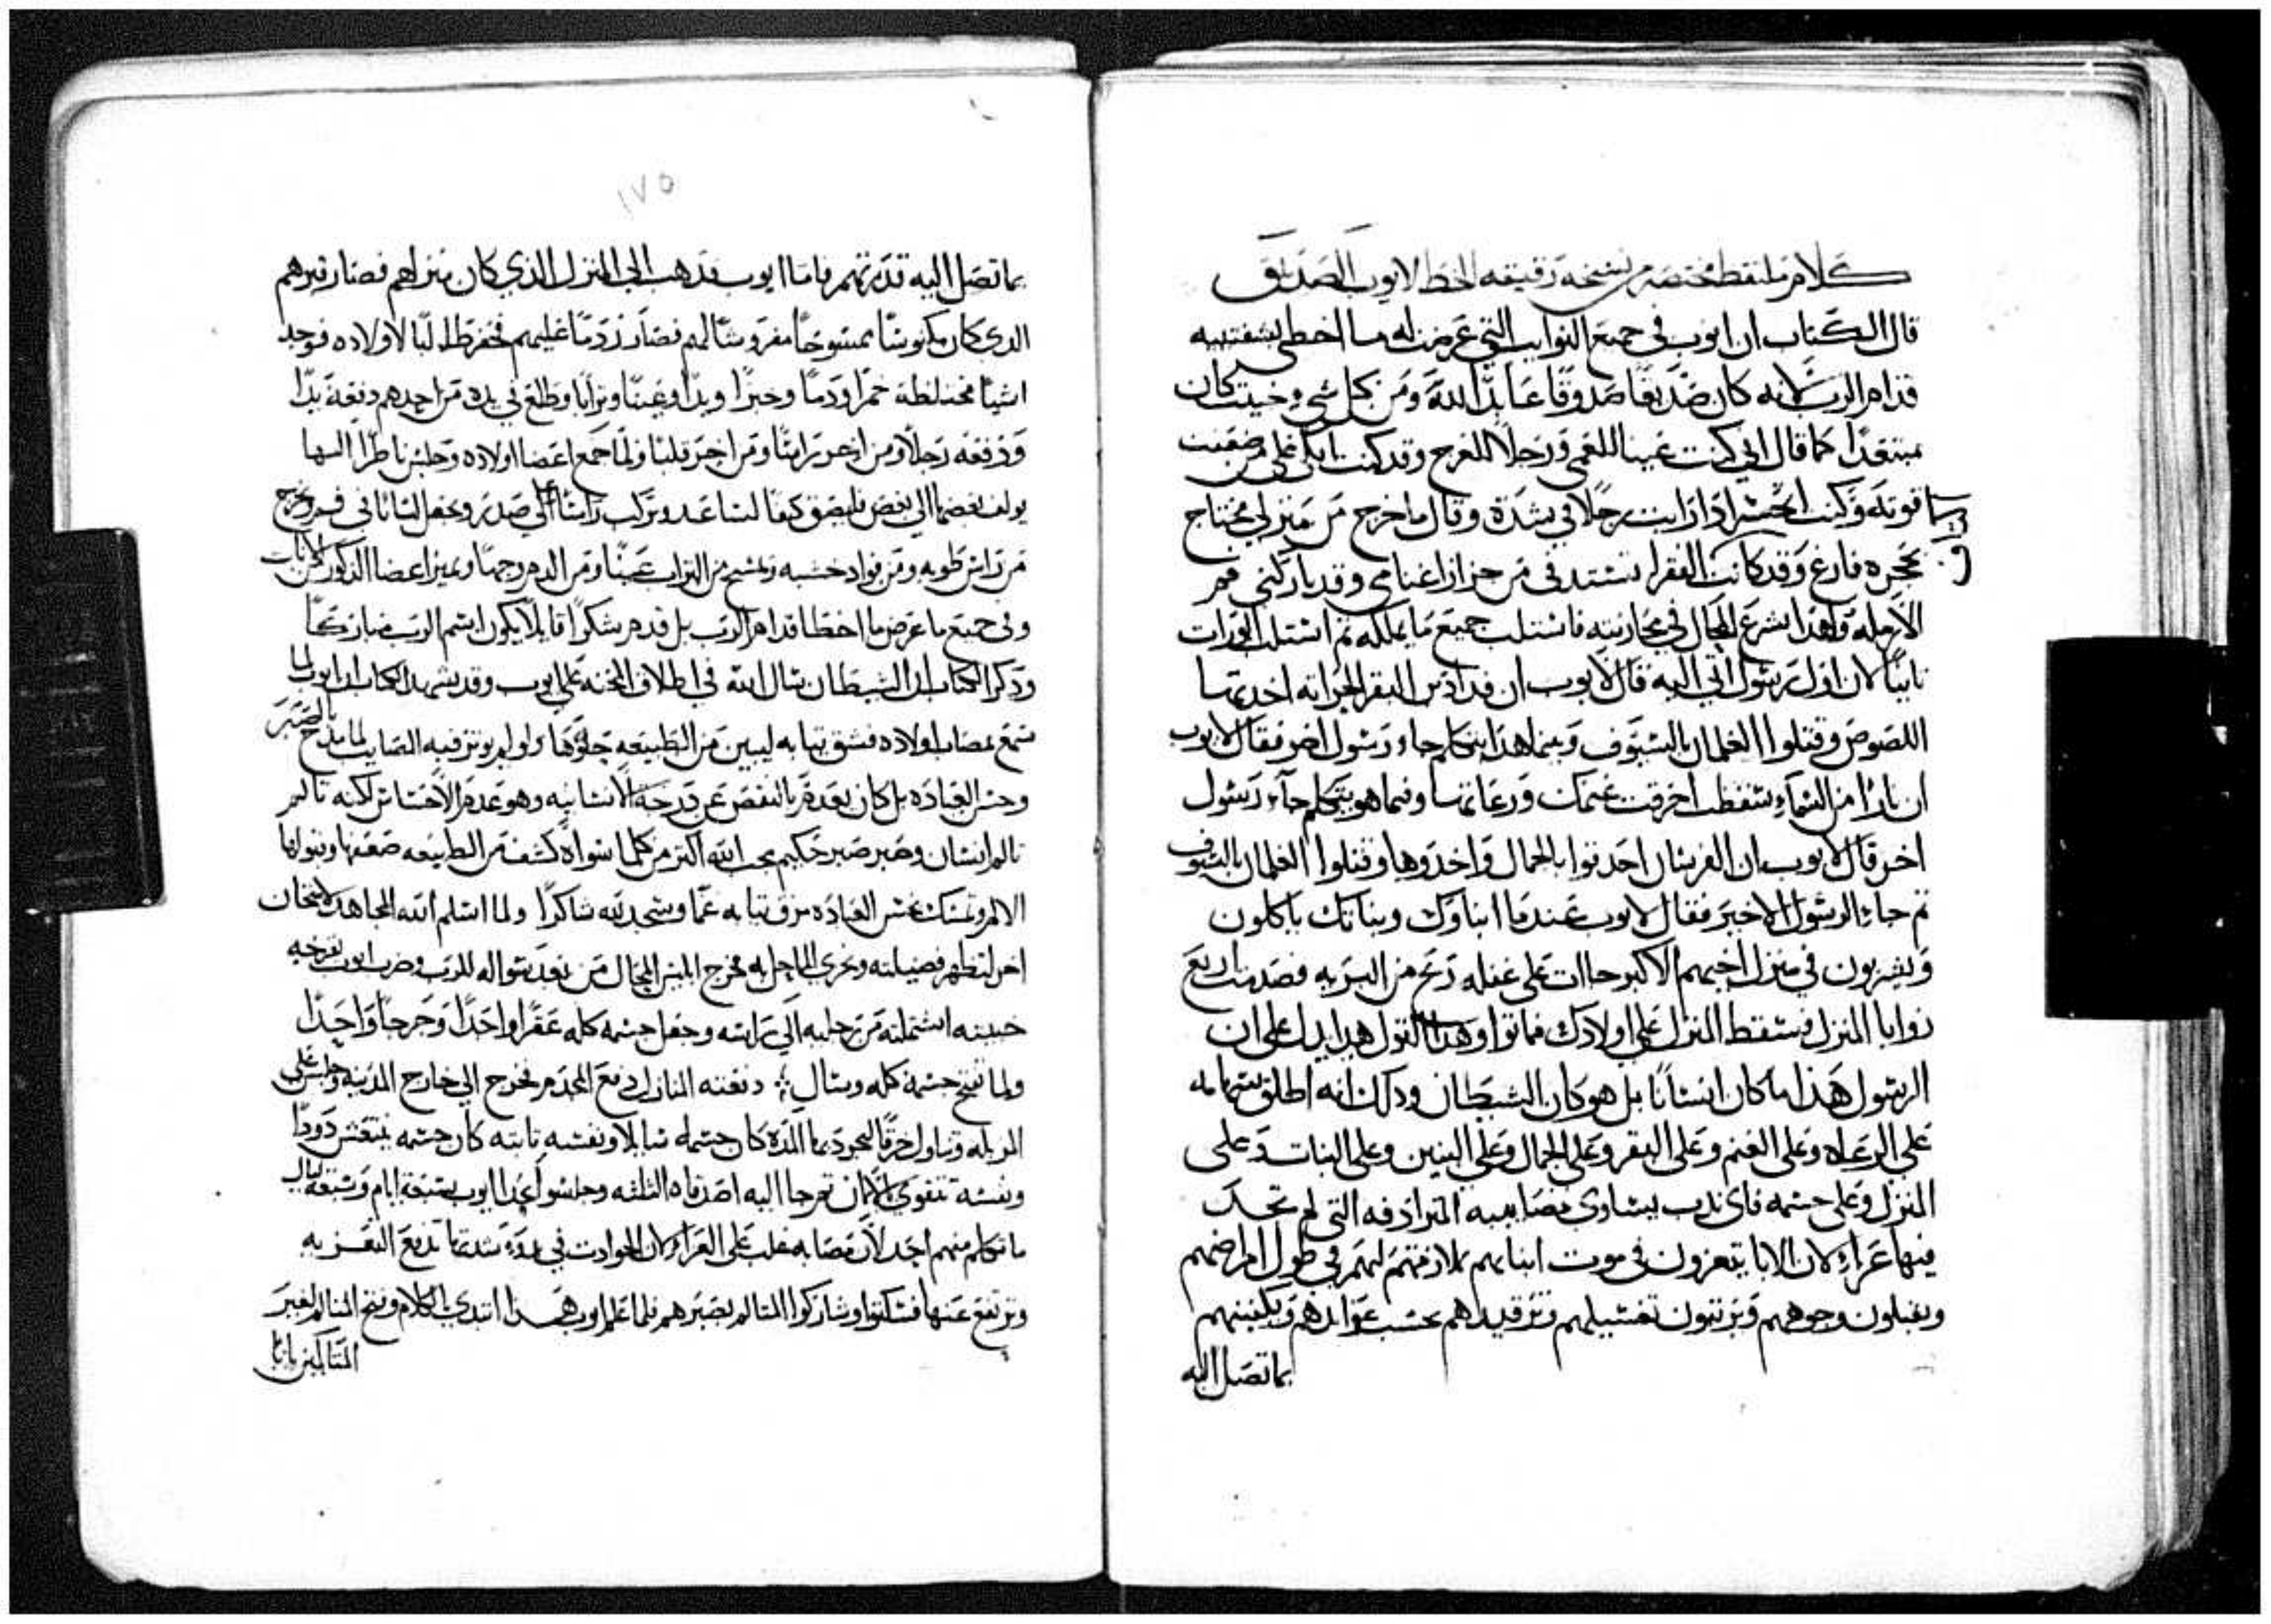 كلام ملتقط مختصر من نسخه دقيقه الخط لايوب الصديق
قال الكتاب ان ايوب في جميع النوايب التي عرضت له ما اخطى بشفتيه
قدام الرب لانه كان صديقا صدوقا عابد الله ومن بكل شي وحيث كان
مبتعدا كما قال اني كنت عينا للعمي ورجلا للعرج وقد كنت ابكي على من ضعفت
قوته وكنت اتحسر اذا رايت رجلا في شدة وقال ما خرج من منزلي محتاج
بحجره فارغ وقد كانت الفقرا تستدفى من جزاز اغنامي وقد باركني فم
الارمله ولهذا شرع المحال في محاربته فاستلب جميع ما يملكه ثم استلب
ثانيا لان اول رسول اتي اليه قال لايوب ان فدادين البقر الحراته اخدتها
اللصوص وقتلوا الغلمان بالسيوف وبينما هدا يتكلم جاء رسول اخر فقال لايوب
ان نارا من السماء سقطت احرقت غنمك ورعاتها وفيما هو يتكلم جاء رسول
اخر قال لايوب ان الفرسان احدقوا بالجمال واخدوها وقتلوا الغلمان بالسيوف
تم جا الرسول الاخير فقال لايوب عندما ابناوك وبناتك ياكلون
ويشربون في منزل اخيهم الاكبر جاات على غفله ريح من البريه فصدمت اربع
زوايا المنزل فسقط المنزل على اولادك فماتوا وهدا القول يدل على ان
الرسول هذا ما كان انسانا بل هو كان الشيطان ودلك انه اطلق سهامه
على الرعاه وعلى الغنم وعلى البقر وعلى الجمال وعلى البنين وعلى البنات وعلى
المنزل وعلى جسمه فاي ندب يساوي مصايبه المترادفه التي لم تجد
فيها عزاء لان الابا يتعزون في موت ابنايهم بملازمتهم لهم في طول امراضهم
ويقبلون وجوههم ويرتبون تغسيلهم وترقيدهم بحسب عوايدهم وتكفينهم
بما تصل اليه
١٧٥
بما تصل اليه قدرتهم فاما ايوب فدهب الى المنزل الذي كان منزلهم فصار قبرهم
الدي كان مكنوسا ممسوحا مفروشا لهم فصار ردما عليهم فحفر طالبا لاولاده فوجد
اشيا مختلطة خمرا ودما وخبزا ويدا وعينا وترابا وطلع في يده من احدهم دفعة يدا
ودفعه رجلا ومن اخر راسا ومن اخر قلبا ولما جمع اعضا اولاده وجلس ناظرا اليها
يولف بعضها الى بعض فليصق كفا لساعد وتركب راسا على صدر ويجعل لسانا في فم ويخرج
من راس طوبه ومن فواد خشبه ويمسح من التراب عينا ومن الدم وجها ويميز اعضا الذكور من الانات
وفي جميع ما عرض ما اخطا قدام الرب بل قدم شكرا قايلا يكون اسم الرب مباركا
ودكر الكتاب ان الشيطان سال الله في اطلاق المحنه على ايوب وقد شهد الكتاب ان ايوب لما
سمع بمصاب اولاده فشق تيابه ليبين من الطبيعه
وحسن العباده بل كان بعدم بالنقص عن درجة الانسانيه وهو عدم الاحساس لكنه تالم
تالم انسان وصبر صبر حكيم يحب الله اكتر من كلما سواه كشف من الطبيعه ضعفها وقبولها
الالم وتمسك بحسن العباده مزق تيابه غما وسجد لله شاكرا ولما اسلم الله المجاهد لامتحان
اخر لتظهر فضيلته ويخزي المحال به فخرج ابليس المحال من بعد سواله للرب وضرب ايوب بقرحه
خبيته اشتملته من رجليه الى راسه وجعل جسمه كله عقرا واحدا وجرحا واحدا
ولما تقيح جسمه كله وسال دفعته المنازل دفع المجدم فخرج الي خارج المدينه وجلس على
المزبله وتناول خزفا ليجرد بها المدة كان جسمه سايلا ونفسه تابته كان جسمه ينتغش دودا
ونفسه تتقوى بالايمان تم جا اليه اصدقاه التلته وجلسوا عند ايوب سبعة ايام وسبعة ليال
ما تكلم منهم احد لان مصابه غلب على العزاء لان الحوادت في بدء شدتها تدفع التعزيه
وترتفع عنها فسكتوا وشاركوا المتالم بصبرهم فلما علم ايوب هدا ابتدى بالكلام وفتح المتالم لغير
المتالمين بابا